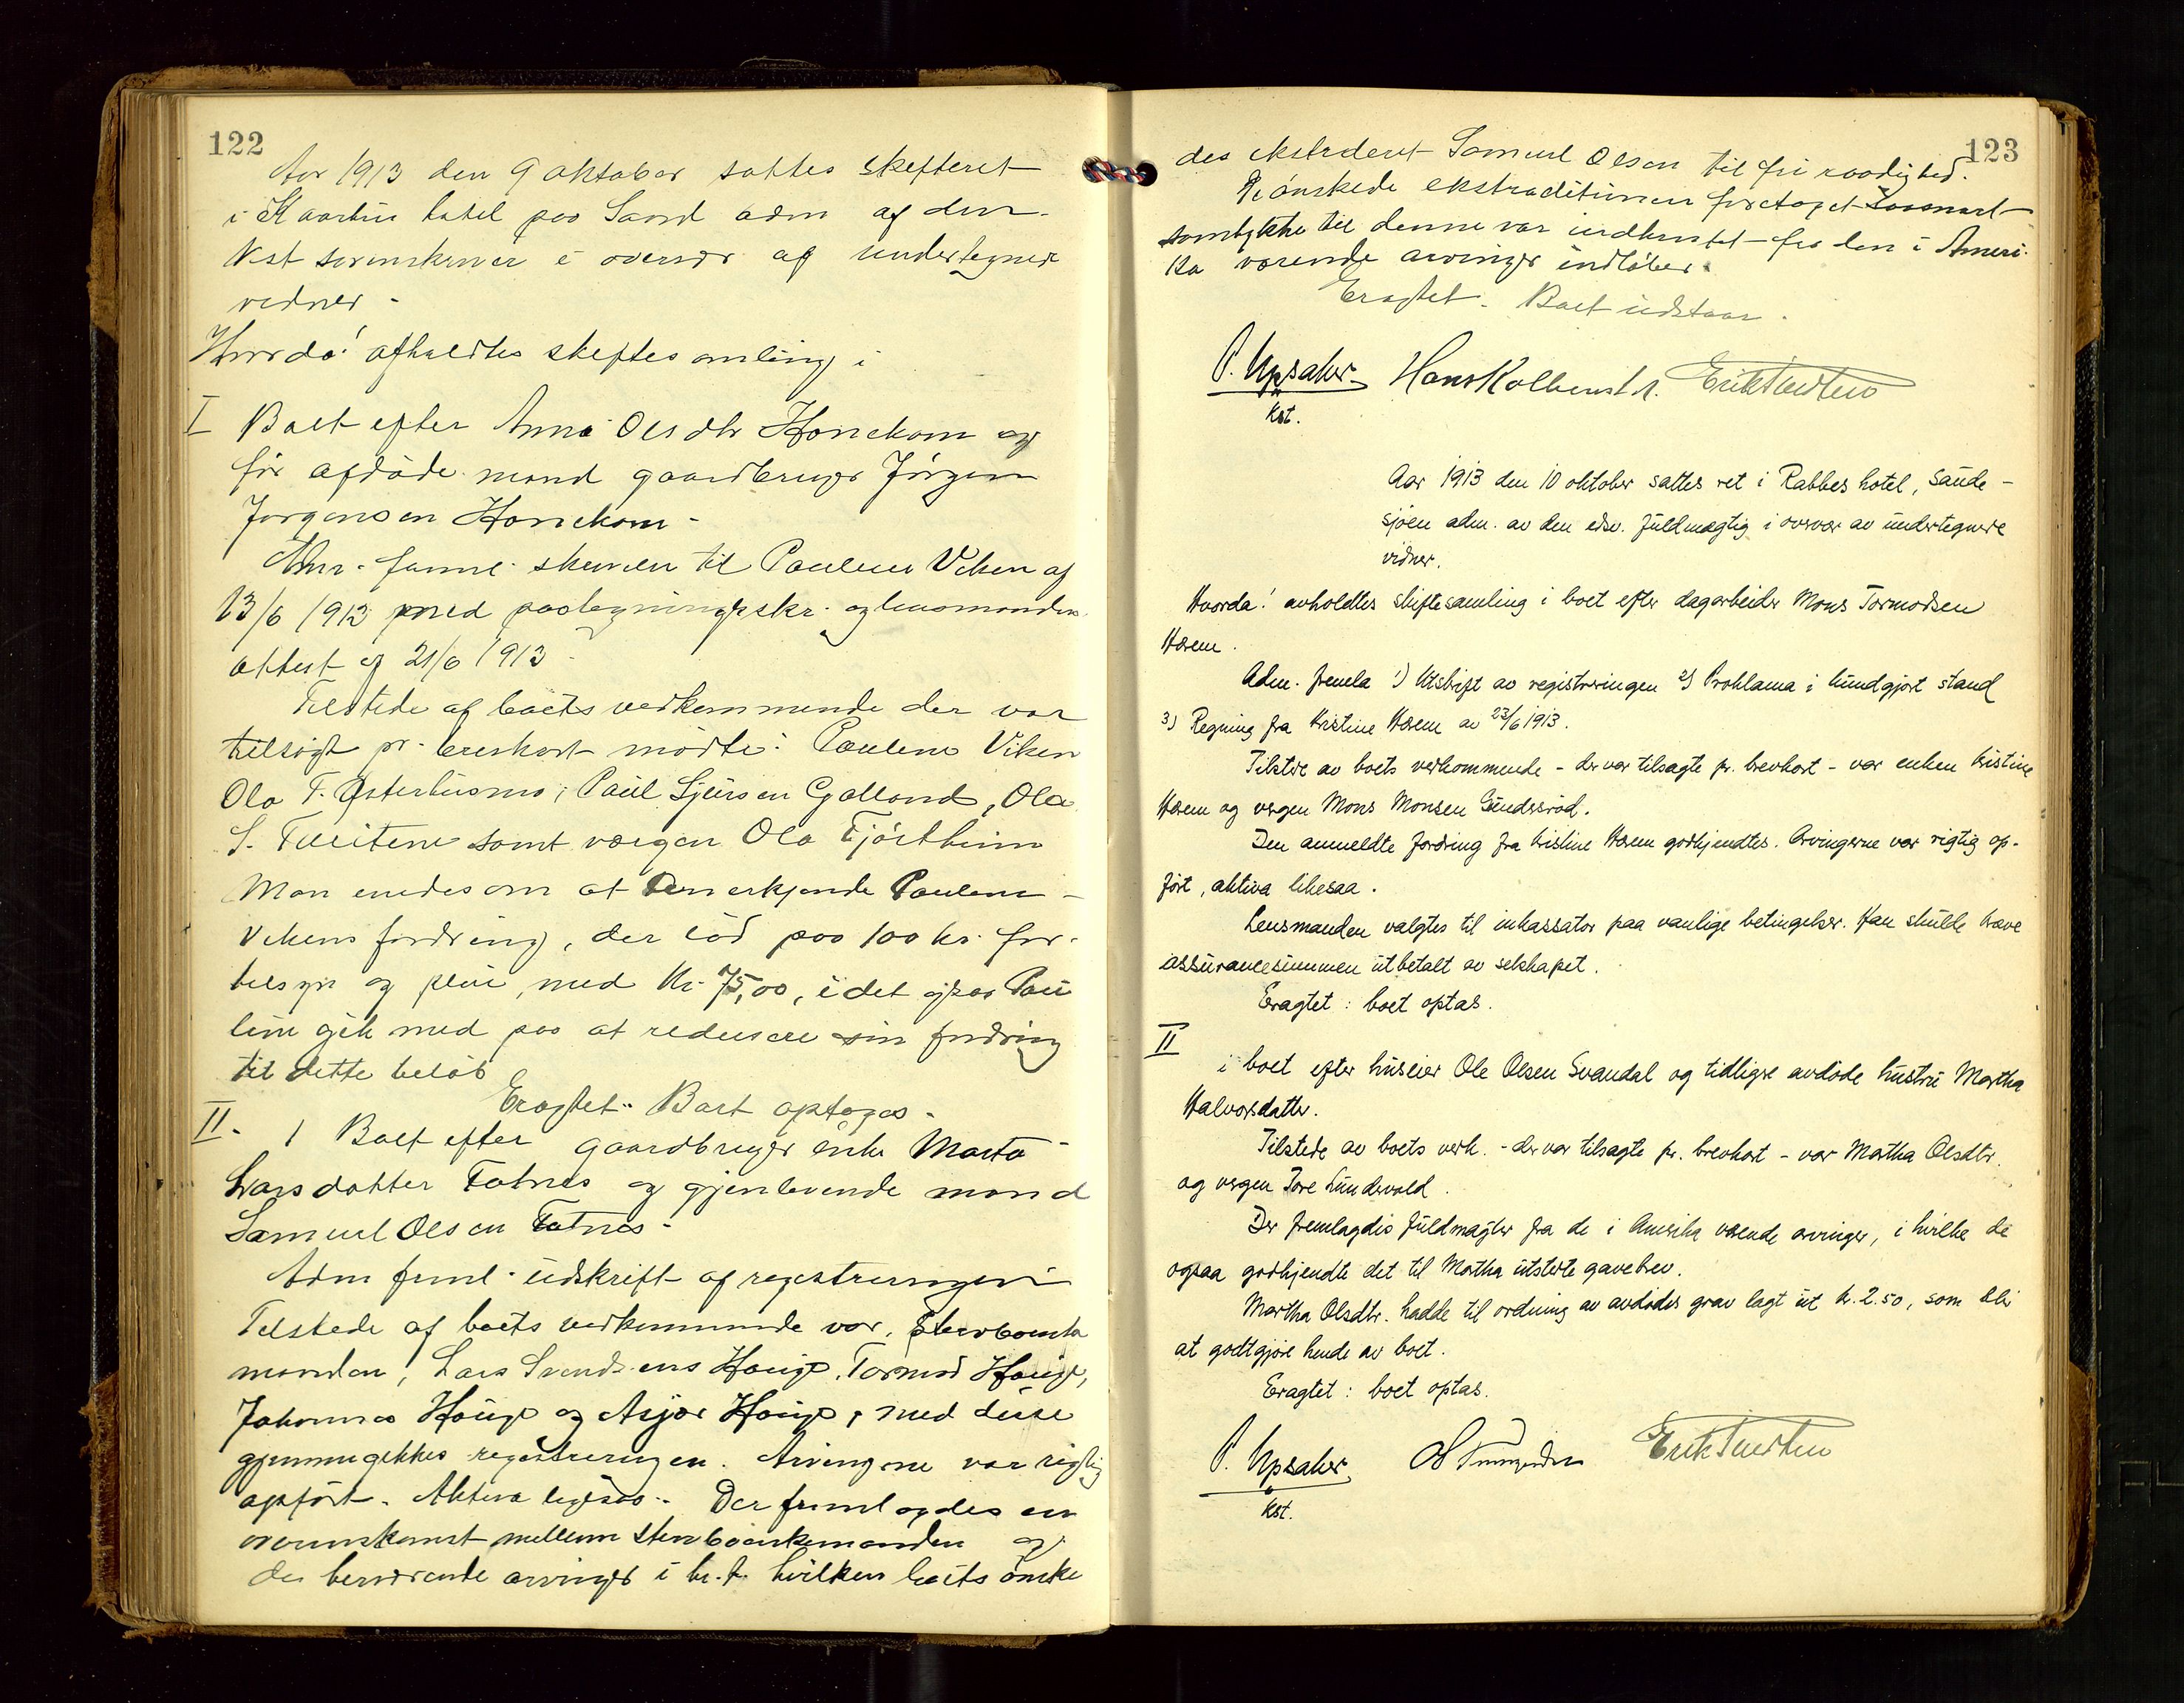 122
Aar 1913 den 9 oktober sattes skifteret
i Kaarhus hotel paa Sand adm af den
kst sorenskriver i overvær af undertegnede
vidner -
Hvorda! afholdtes skiftesamling i
I Boet efter Anna Olsdtr Honekom og
før afdøde mand gaardbruger Jørgen
Jørgensen Honekom -
Adm. freml. skrivelse til Pauline Viken af
13/6 1913 med paategning skr. og lensmandens
attest af 21/6 1913
Tilstede af boets vedkommende der var
tilsagt pr. brevkort mødte: Pauline Viken
Ola T. Østerhusmo, Paul Sjursen Galland, Ola
S. Tveitene samt værgen Ola Fjørtheim
Man enedes om at anerkjende Pauline
Vikens fordring, der lød paa 100 kr. for
tilsyn og pleie, med kr. 75,00, idet ogsaa Pau
line gik med paa at redusere sin fordring
til dette beløb
Eragtet: Boet optages -
II - I Boet efter gaardbruger enke Marta
Larsdatter Fatnes og gjenlevende mand
Samuel Olsen Fatnes -
Adm freml. udskrift af registreringen
Tilstede af boets vedkommende var, sterboenke
manden, Lars Svendsens Hauge, Tormod Hauge,
Johannes Hauge og Asjør Hauge, med disse
gjennemgikkes registreringen. Arvingene var rigtig
opført. Aktiva ligesaa. Der fremlagdes en
overenskomst mellem sterboenkemanden og
de herværende arvinger i h. t. hvilken boets ønske
123
des ekstraderet Samuel Olsen til fri raadighed.
De ønskede ekstraditionen foretaget saasnart
samtykke til denne var indhentet fra den i Ameri-
ka værende arvinger indløber.
Eragtet. Boet udstaar.
P. Upsaker Hans Kolbenstv. Erik Tveiten
kst.
Aar 1913 den 10 oktober sattes ret i Rabbes hotel, Saude-
sjøen adm. av den edsv. fuldmægtig i overvær av undertegnede
vidner.
Hvorda! avholdtes skiftesamling i boet efter dagarbeider Mons Tormodsen
Herem.
Adm. fremla 1) Utskrift av registreringen 2) Proklama i kundgjort stand
3) Regning fra Kristine Herem av 23/6 1913.
Tilstede av boets vedkommende - der var tilsagte pr. brevkort - var enken Kristine
Herem og vergen Mons Monsen Gundersrød.
Den anmeldte fordring fra Kristine Herem godkjendtes. Arvingerne var rigtig op-
ført, aktiva likesaa.
Lensmanden valgtes til inkassator paa vanlige betingelser. Han skulde kræve
assurancesummen utbetalt av selskapet.
Eragtet: boet optas.
II
i boet efter huseier Ole Olsen Svandal og tidligere avdøde hustru Martha
Halvorsdatter.
Tilstede av boets vedk. - der var tilsagte pr. brevkort - var Martha Olsdtr.
og vergen Tore Lundevold.
Der fremlagdes fuldmagter fra de i Amerika værende arvinger, i hvilke de
ogsaa godkjendte det til Martha utstedte gavebrev.
Martha Olsdtr. hadde til ordning av avdødes grav lagt ut kr. 2.50, som blir
at godtgjøre hende av boet.
Eragtet: boet optas.
P. Upsaker Erik Tveiten
kst.